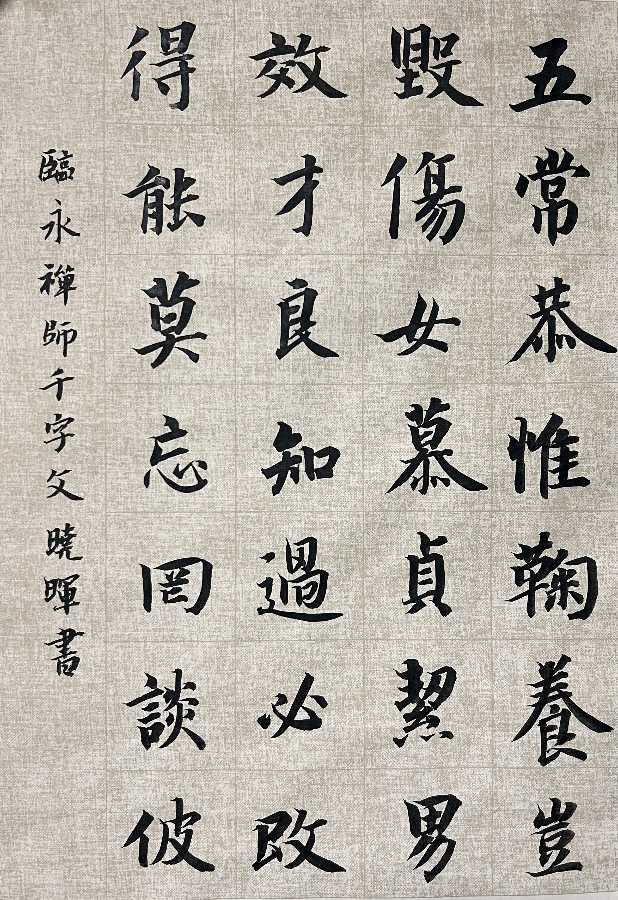 五常恭惟鞠養豈
毀傷女慕貞絜男
效才良知過必改
得能莫忘罔談彼
臨永禪師千字文曉暉書